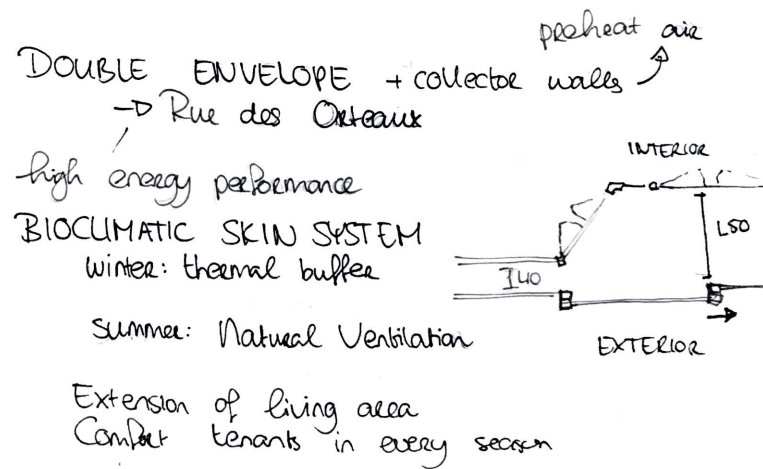 preheat air
DOUBLE ENVELOPE + collector walls
→ Rue des Orteaux
high energy performance
BIOCLIMATIC SKIN SYSTEM
winter: thermal buffer
summer: Natural Ventilation
Extension of living area
Comfort tenants in every season
INTERIOR
150
I40
EXTERIOR